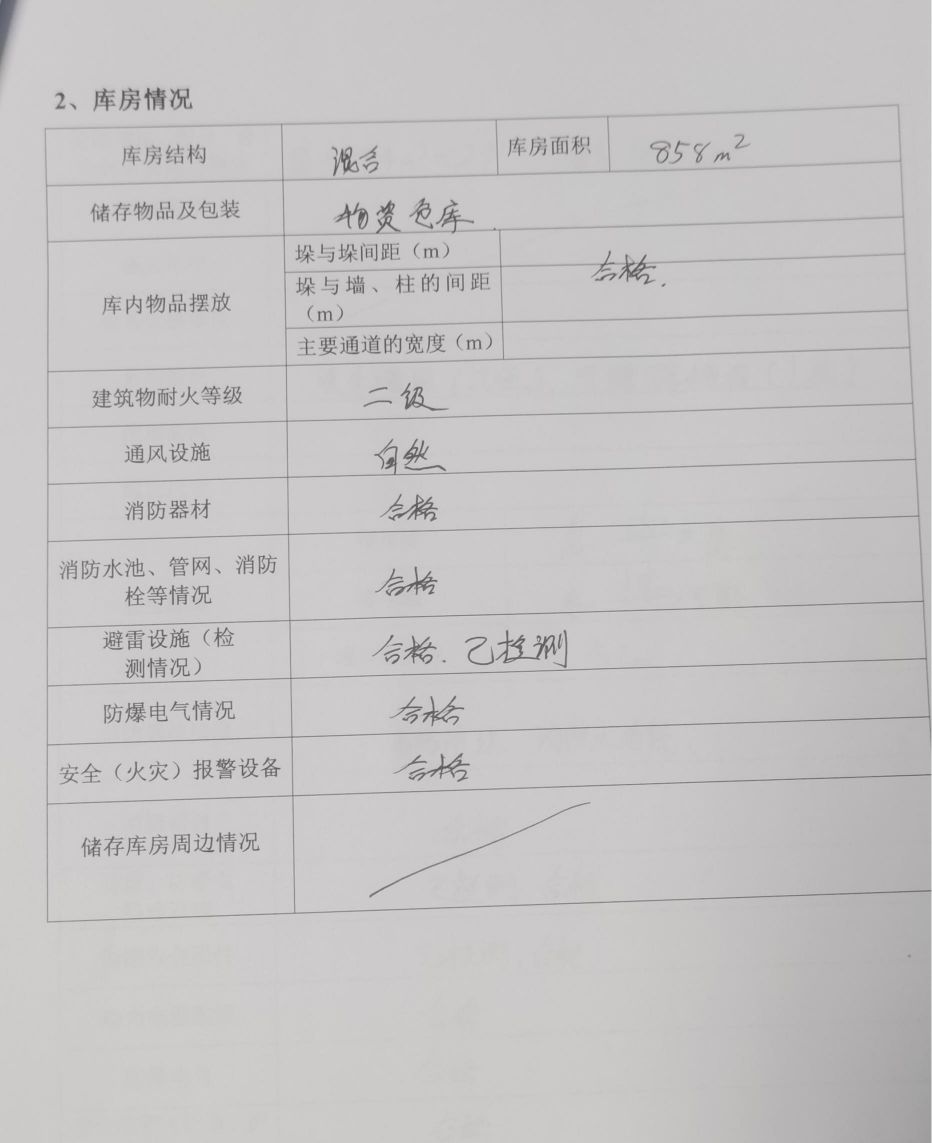 2、库房情况
库房结构 混合 库房面积 858m²
储存物品及包装 物资仓库.
库内物品摆放 垛与垛间距（m） 合格.
垛与墙、柱的间距
（m）
主要通道的宽度（m）
建筑物耐火等级 二级
通风设施 自然
消防器材 合格
消防水池、管网、消防
栓等情况 合格
避雷设施（检
测情况） 合格. 已检测
防爆电气情况 合格
安全（火灾）报警设备 合格
储存库房周边情况